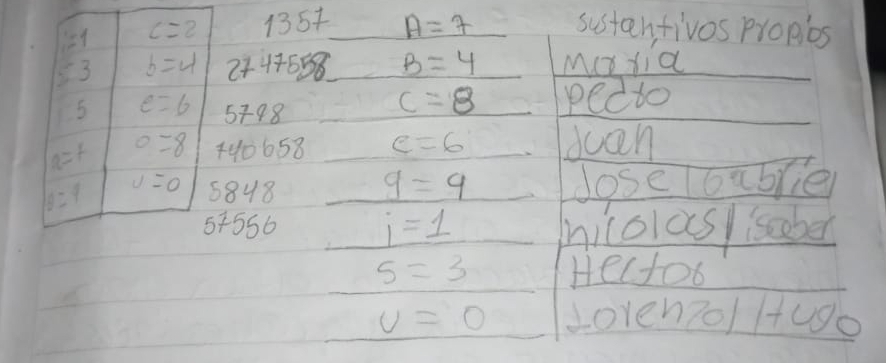 i=1 c=2 1357 A=7 sustantivos propios
s=3 b=4 2747658 B=4 María
5 e=6 5798 C=8 Pedro
a=7 o=8 740658 e=6 Juan
u=0 5848 g=9 Jose Gabriel
57556 i=1 nicolas isabel
s=3 Hector
u=0 Lorenzo Hugo